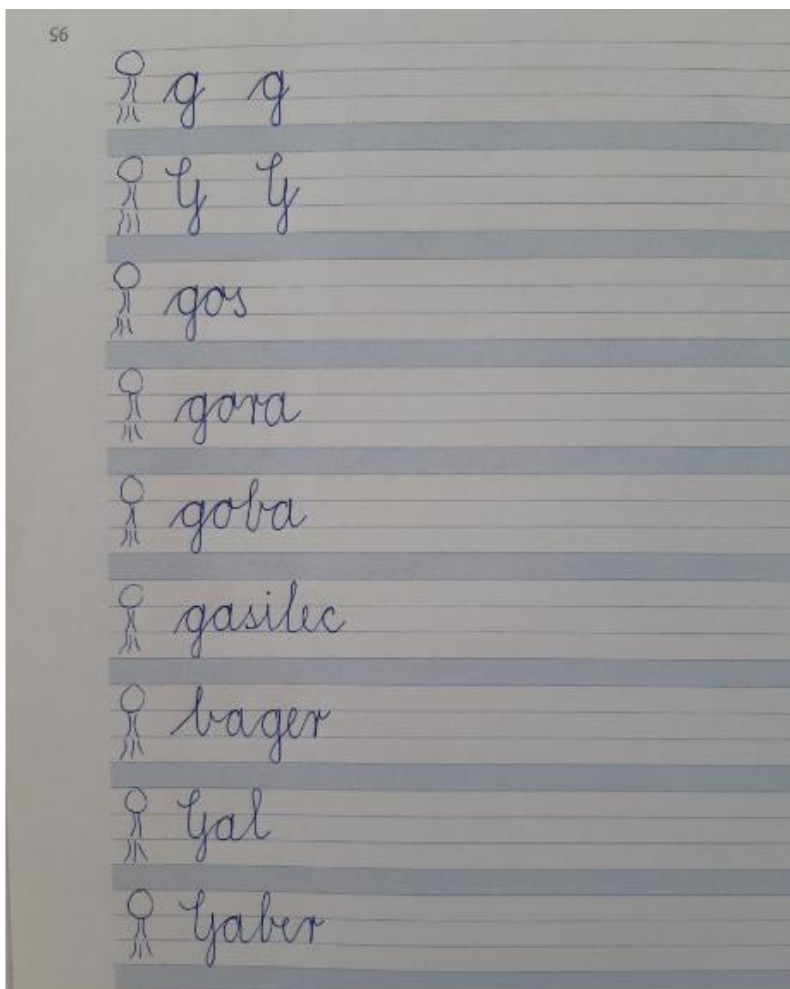 56
g g
G G
gos
gora
goba
gasilec
bager
Gal
Gaber